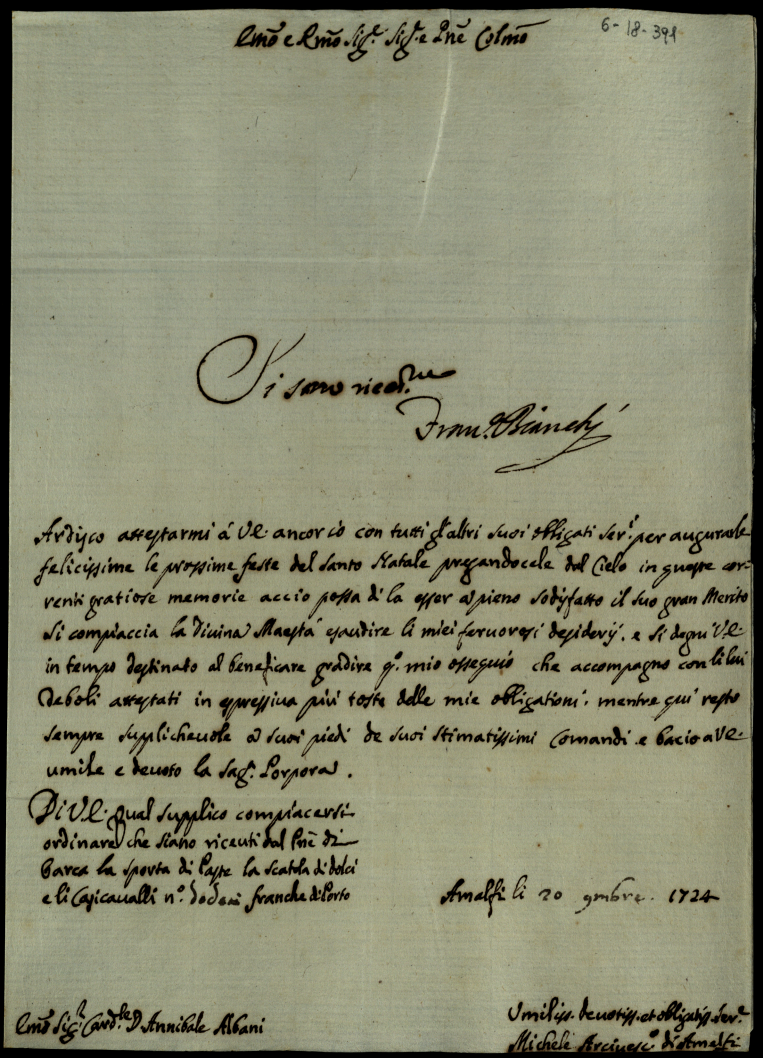 6-18-391
Emõ e Rmõ Sig.r Sig.r e Pnẽ Colmõ
Si sono riced.
Fran.o Bianchi
Ardisco attestarmi á VE. ancor io con tutti gl'altri suoi obligati Ser.i per augurarle
felicissime le prossime feste del Santo Natale pregandocele dal Cielo in queste cor-
renti gratiose memorie accio possa di la esser à pieno sodisfatto il suo gran Merito
Si compiaccia la Divina Maestá esaudire li miei fervorosi desiderij, e si degni VE.
in tempo destinato al beneficare gradire q.o mio ossequio che accompagno con li lui
deboli attestati in espressiva piú tosto delle mie obligationi, mentre qui resto
sempre supplichevole à suoi piedi de suoi stimatissimi Comandi e bacio a VE.
umile e devoto la Sag.a Porpora.
Di VE. qual supplico compiacersi
ordinare che siano riceuti dal Pnẽ di
barca la sporta di Paste la scatola di dolci
e li Casicavalli n.o dodeci franche di Porto
Amalfi li 20 9mbre. 1724
Emõ Sig.r Card.le D Annibale Albani
Umiliss. devotiss. et obligatiss. Ser.e
Michele Arcivesc.o di Amalfi